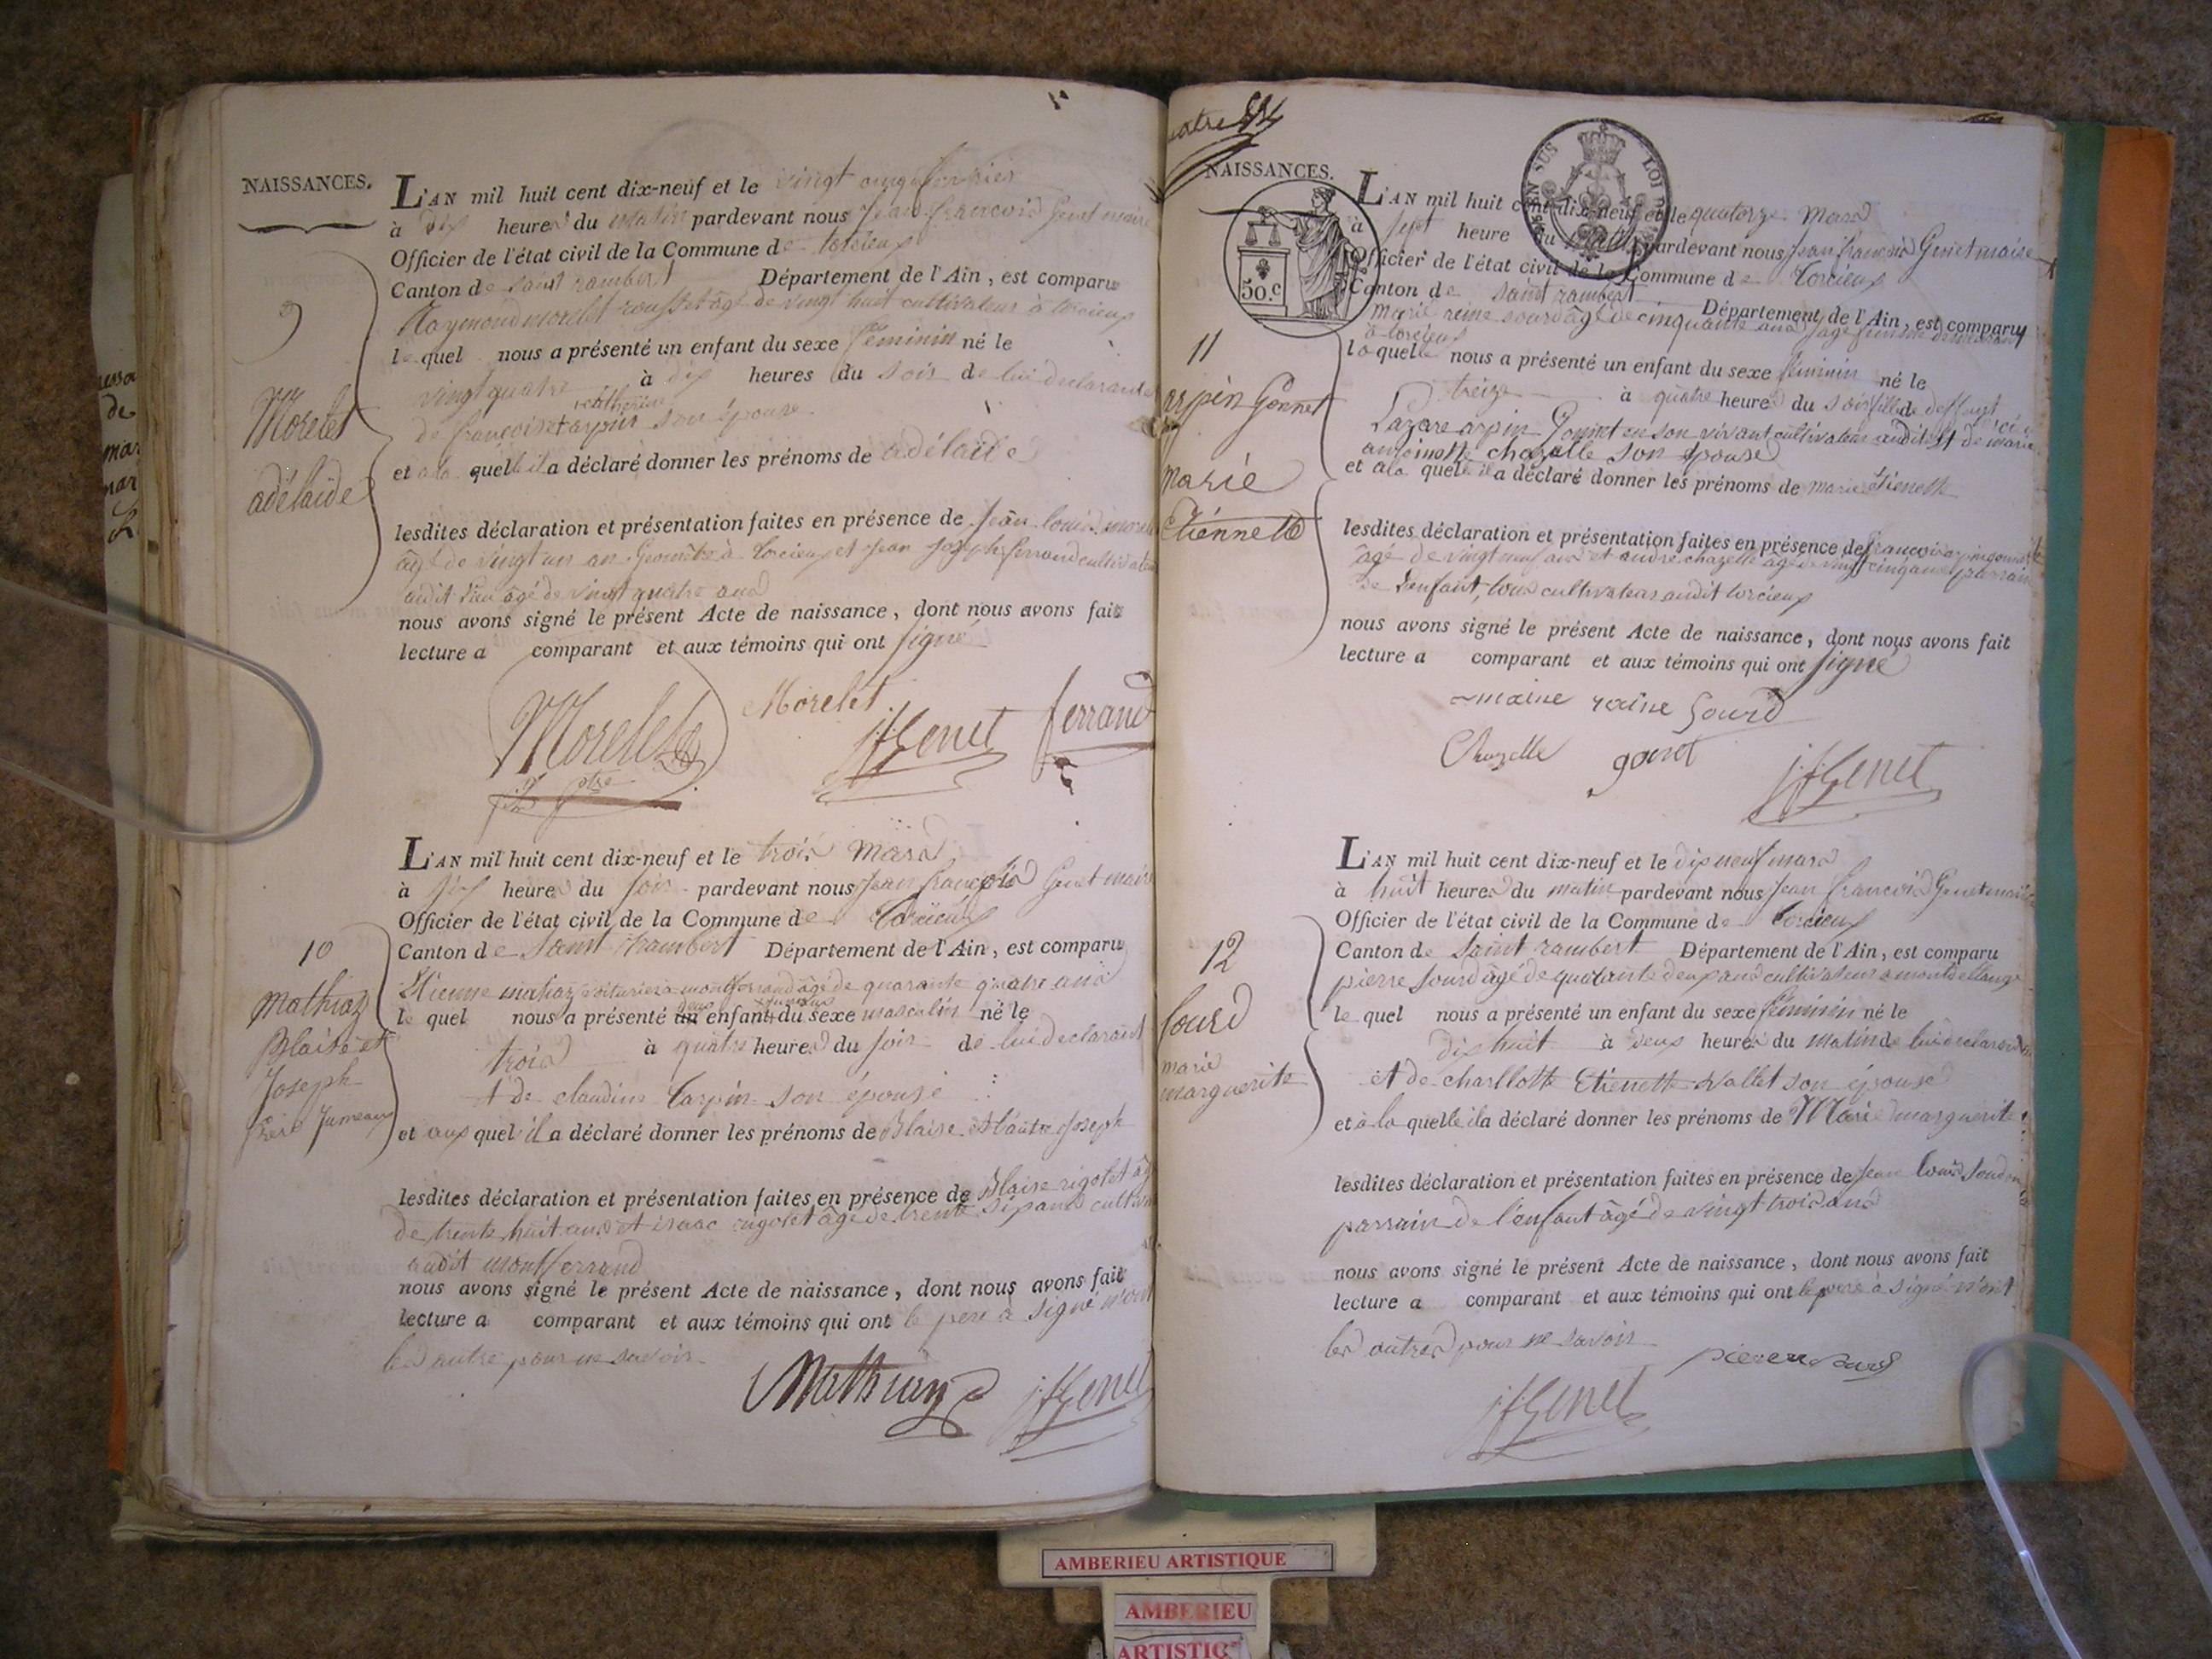 NAISSANCES.
L'AN mil huit cent dix-neuf et le vingt cinq fevrier
à dix heures du matin pardevant nous Jean francois Genet maire
Officier de l'état civil de la Commune de torcieux
Canton de saint rambert Département de l'Ain, est comparu
Raymond morelet rousset âgé de vingt huit cultivateur à torcieux
le quel nous a présenté un enfant du sexe féminin né le
vingt quatre à dix heures du soir de lui declarant
catherine
de francoise arpin son épouse
et a la quelle il a déclaré donner les prénoms de adélaïde
9
Morelet
adélaïde
lesdites déclaration et présentation faites en présence de Jean louis morelet
âgé de vingt un an Geometre à torcieux et Jean Joseph ferrand cultivateur
audit lieu âgé de vingt quatre ans
nous avons signé le présent Acte de naissance, dont nous avons fait
lecture a comparant et aux témoins qui ont signé
Morelet
Morelet
jfGenet
ferrand
L'AN mil huit cent dix-neuf et le trois mars
à six heures du soir pardevant nous Jean françois Genet maire
Officier de l'état civil de la Commune de torcieux
Canton de saint rambert Département de l'Ain, est comparu
Etienne mathiaz voiturier a montferrand âgé de quarante quatre ans
deux jumeaux
le quel nous a présenté un enfant du sexe masculin né le
trois à quatre heures du soir de lui declarant
et de claudine tarpin son épouse
et aux quel il a déclaré donner les prénoms de Blaise et l'autre Joseph
10
Mathiaz
Blaise et
Joseph
frere Jumeaux
lesdites déclaration et présentation faites en présence de Blaise rigolet âgé
de trente huit ans et isaac rigolet âgé de trente six ans cultiva
audit montferrand
nous avons signé le présent Acte de naissance, dont nous avons fait
lecture a comparant et aux témoins qui ont le pere à signé non
les autre pour ne savoir
Mathiaz
jfGenet
NAISSANCES.
50.c
L'AN mil huit cent dix-neuf et le quatorze mars
à sept heure du pardevant nous Jean francois Genet maire
Officier de l'état civil de la Commune de torcieux
Canton de saint rambert Département de l'Ain, est comparu
marie reine sourd âgé de cinquante ans sage femme demeurant
à torcieux
la quelle nous a présenté un enfant du sexe féminin né le
treize à quatre heures du soir fille de deffunt
Lazare arpin Gonnet en son vivant cultivateur audit et de marie
antoinette chazelle son épouse
et a la quelle il a déclaré donner les prénoms de marie étienette
11
arpin Gonnet
marie
Etiennette
lesdites déclaration et présentation faites en présence de francois arpin gonnet
âgé de vingt neuf ans et andré chazelle âgé de vingt cinq ans parrain
de l'enfant, tous cultivateur audit torcieux
nous avons signé le présent Acte de naissance, dont nous avons fait
lecture a comparant et aux témoins qui ont signé
maine raine Sourd
Chazelle gonet
jfGenet
L'AN mil huit cent dix-neuf et le dix neuf mars
à huit heures du matin pardevant nous Jean francois Genet maire
Officier de l'état civil de la Commune de torcieux
Canton de saint rambert Département de l'Ain, est comparu
pierre sourd âgé de quarante deux ans cultivateur a montdellange
le quel nous a présenté un enfant du sexe féminin né le
dix huit à deux heures du matin de lui declarant
et de charllotte Etienette vallet son épouse
et à la quelle il a déclaré donner les prénoms de Marie marguerite
12
sourd
marie
marguerite
lesdites déclaration et présentation faites en présence de Jean louis
parrain de l'enfant âgé de vingt trois ans
nous avons signé le présent Acte de naissance, dont nous avons fait
lecture a comparant et aux témoins qui ont le pere à signé non
les autres pour ne savoir
pierre sourd
jfGenet
AMBERIEU ARTISTIQUE
AMBERIEU
ARTISTIQ